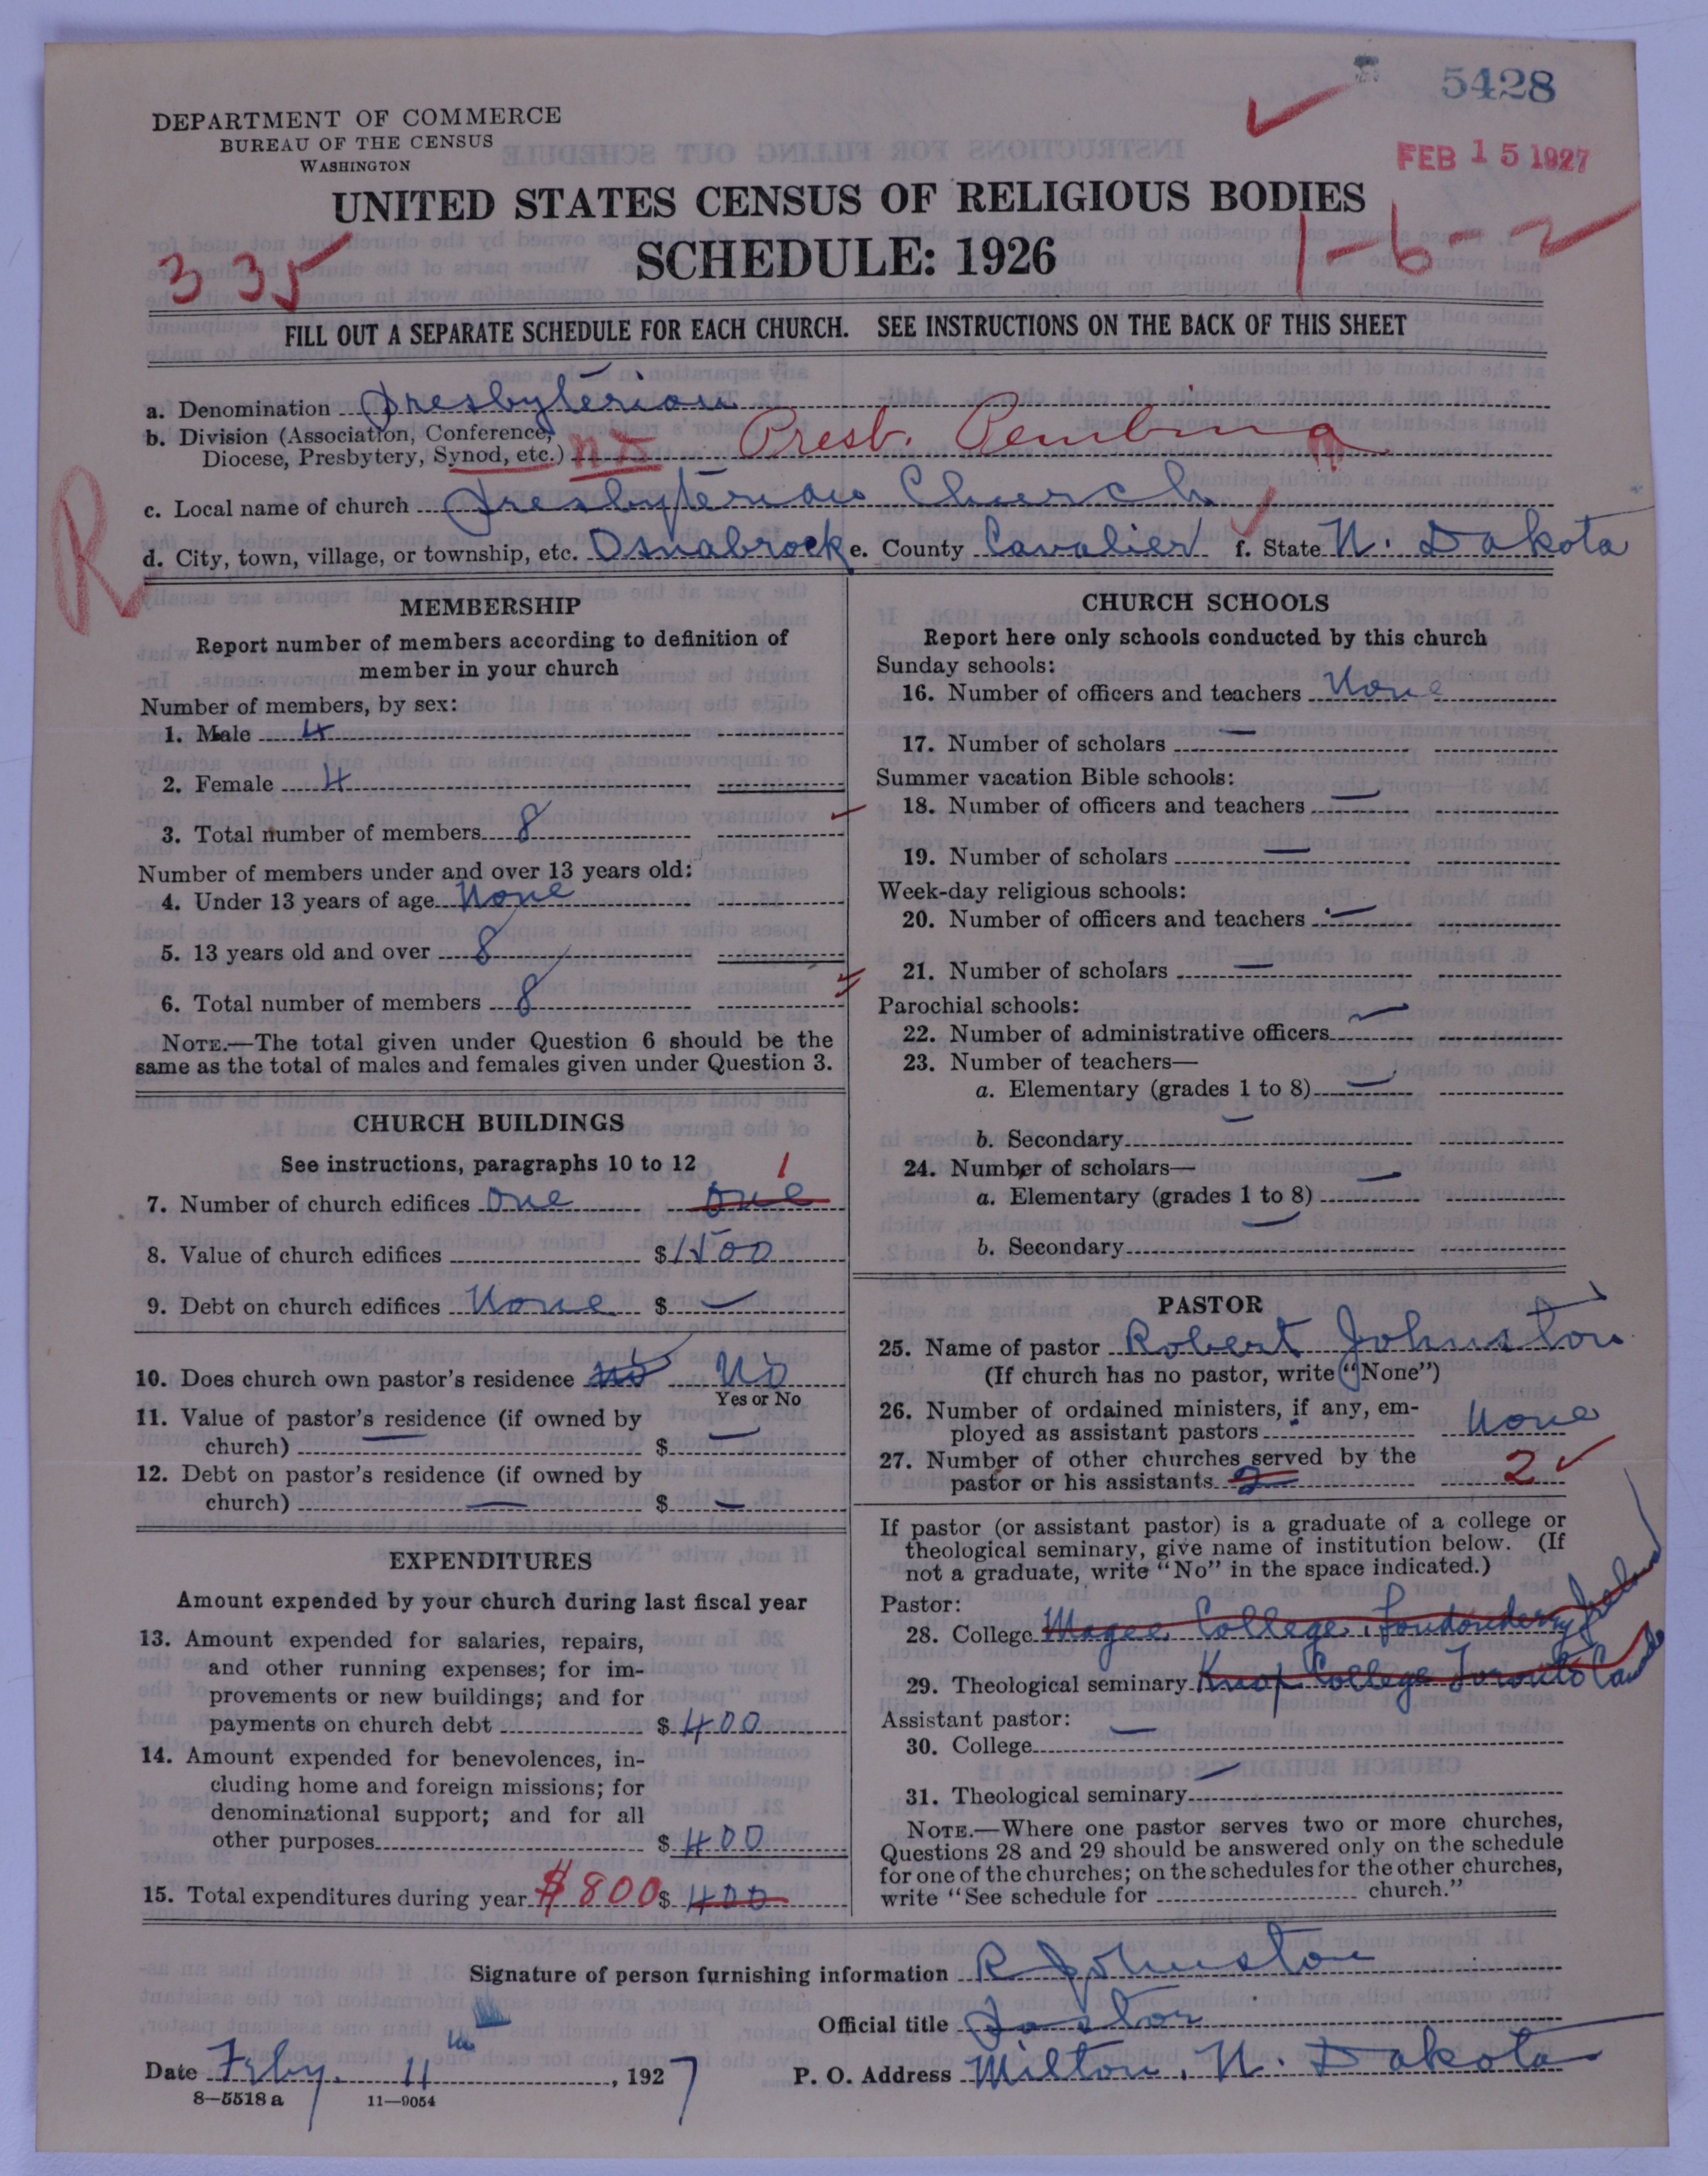 5428
DEPARTMENT OF COMMERCE
BUREAU OF THE CENSUS
WASHINGTON
FEB 15 1927
UNITED STATES CENSUS OF RELIGIOUS BODIES
SCHEDULE: 1926
335
1-6-2
FILL OUT A SEPARATE SCHEDULE FOR EACH CHURCH. SEE INSTRUCTIONS ON THE BACK OF THIS SHEET
a. Denomination Presbyterian
b. Division (Association, Conference,
Diocese, Presbytery, Synod, etc.) Presb. Pembina
R
c. Local name of church Presbyterian Church
d. City, town, village, or township, etc. Osnabrock e. County Cavalier f. State N. Dakota
MEMBERSHIP
Report number of members according to definition of
member in your church
Number of members, by sex:
1. Male 4
2. Female 4
3. Total number of members 8
Number of members under and over 13 years old:
4. Under 13 years of age None
5. 13 years old and over 8
6. Total number of members 8
NOTE.—The total given under Question 6 should be the
same as the total of males and females given under Question 3.
CHURCH BUILDINGS
See instructions, paragraphs 10 to 12
1
7. Number of church edifices One One
8. Value of church edifices $1500
9. Debt on church edifices None $ —
10. Does church own pastor's residence No No
Yes or No
11. Value of pastor's residence (if owned by
church) — $ —
12. Debt on pastor's residence (if owned by
church) — $ —
EXPENDITURES
Amount expended by your church during last fiscal year
13. Amount expended for salaries, repairs,
and other running expenses; for im-
provements or new buildings; and for
payments on church debt $ 400
14. Amount expended for benevolences, in-
cluding home and foreign missions; for
denominational support; and for all
other purposes $ 400
15. Total expenditures during year $800 $ 400
CHURCH SCHOOLS
Report here only schools conducted by this church
Sunday schools:
16. Number of officers and teachers None
17. Number of scholars —
Summer vacation Bible schools:
18. Number of officers and teachers —
19. Number of scholars —
Week-day religious schools:
20. Number of officers and teachers —
21. Number of scholars —
Parochial schools:
22. Number of administrative officers —
23. Number of teachers—
a. Elementary (grades 1 to 8) —
b. Secondary —
24. Number of scholars—
a. Elementary (grades 1 to 8) —
b. Secondary —
PASTOR
25. Name of pastor Robert Johnston
(If church has no pastor, write "None")
26. Number of ordained ministers, if any, em-
ployed as assistant pastors None
27. Number of other churches served by the
pastor or his assistants 2 2
If pastor (or assistant pastor) is a graduate of a college or
theological seminary, give name of institution below. (If
not a graduate, write "No" in the space indicated.)
Pastor:
28. College Magee College, Londonderry
29. Theological seminary Knox College Toronto
Assistant pastor:
30. College —
31. Theological seminary —
NOTE.—Where one pastor serves two or more churches,
Questions 28 and 29 should be answered only on the schedule
for one of the churches; on the schedules for the other churches,
write "See schedule for church."
Signature of person furnishing information R Johnston
Official title Pastor
Date Feby. 11 th, 1927 P. O. Address Milton, N. Dakota
8—5518 a 11—9054